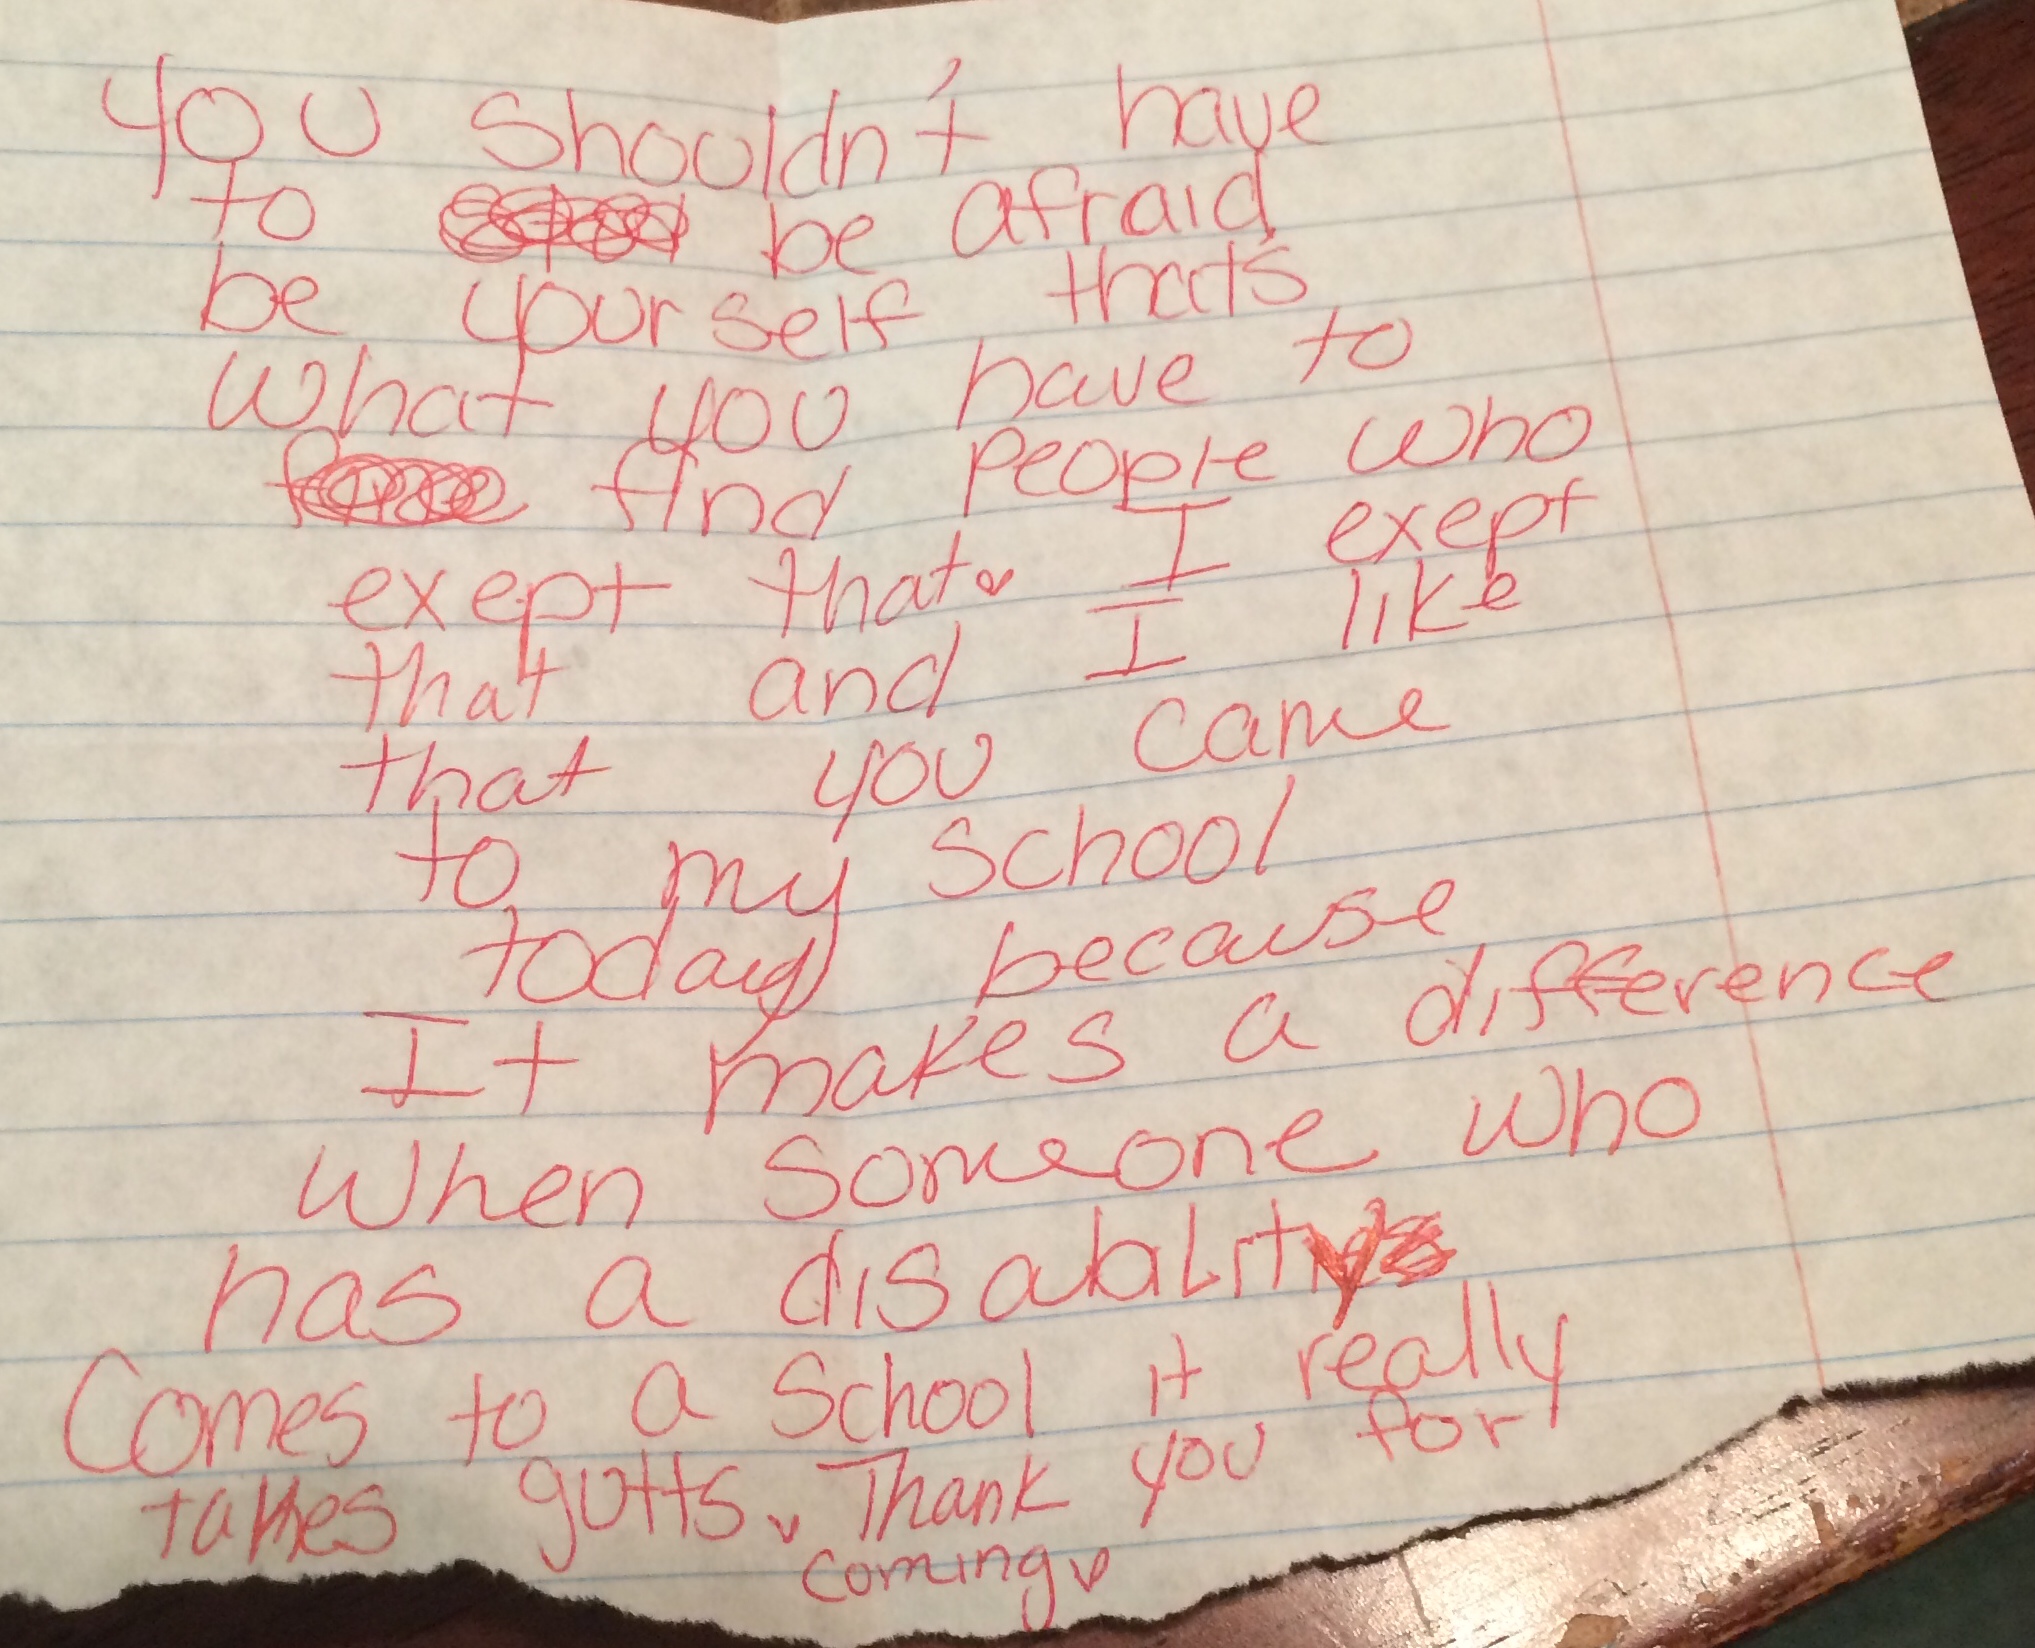 you shouldn't have
to be afraid
be yourself that's
what you have to
find people who
exept that. I exept
that and I like
that you came
to my school
today because
It makes a difference
when someone who
has a disability
Comes to a school it really
takes gutts. Thank you for
coming